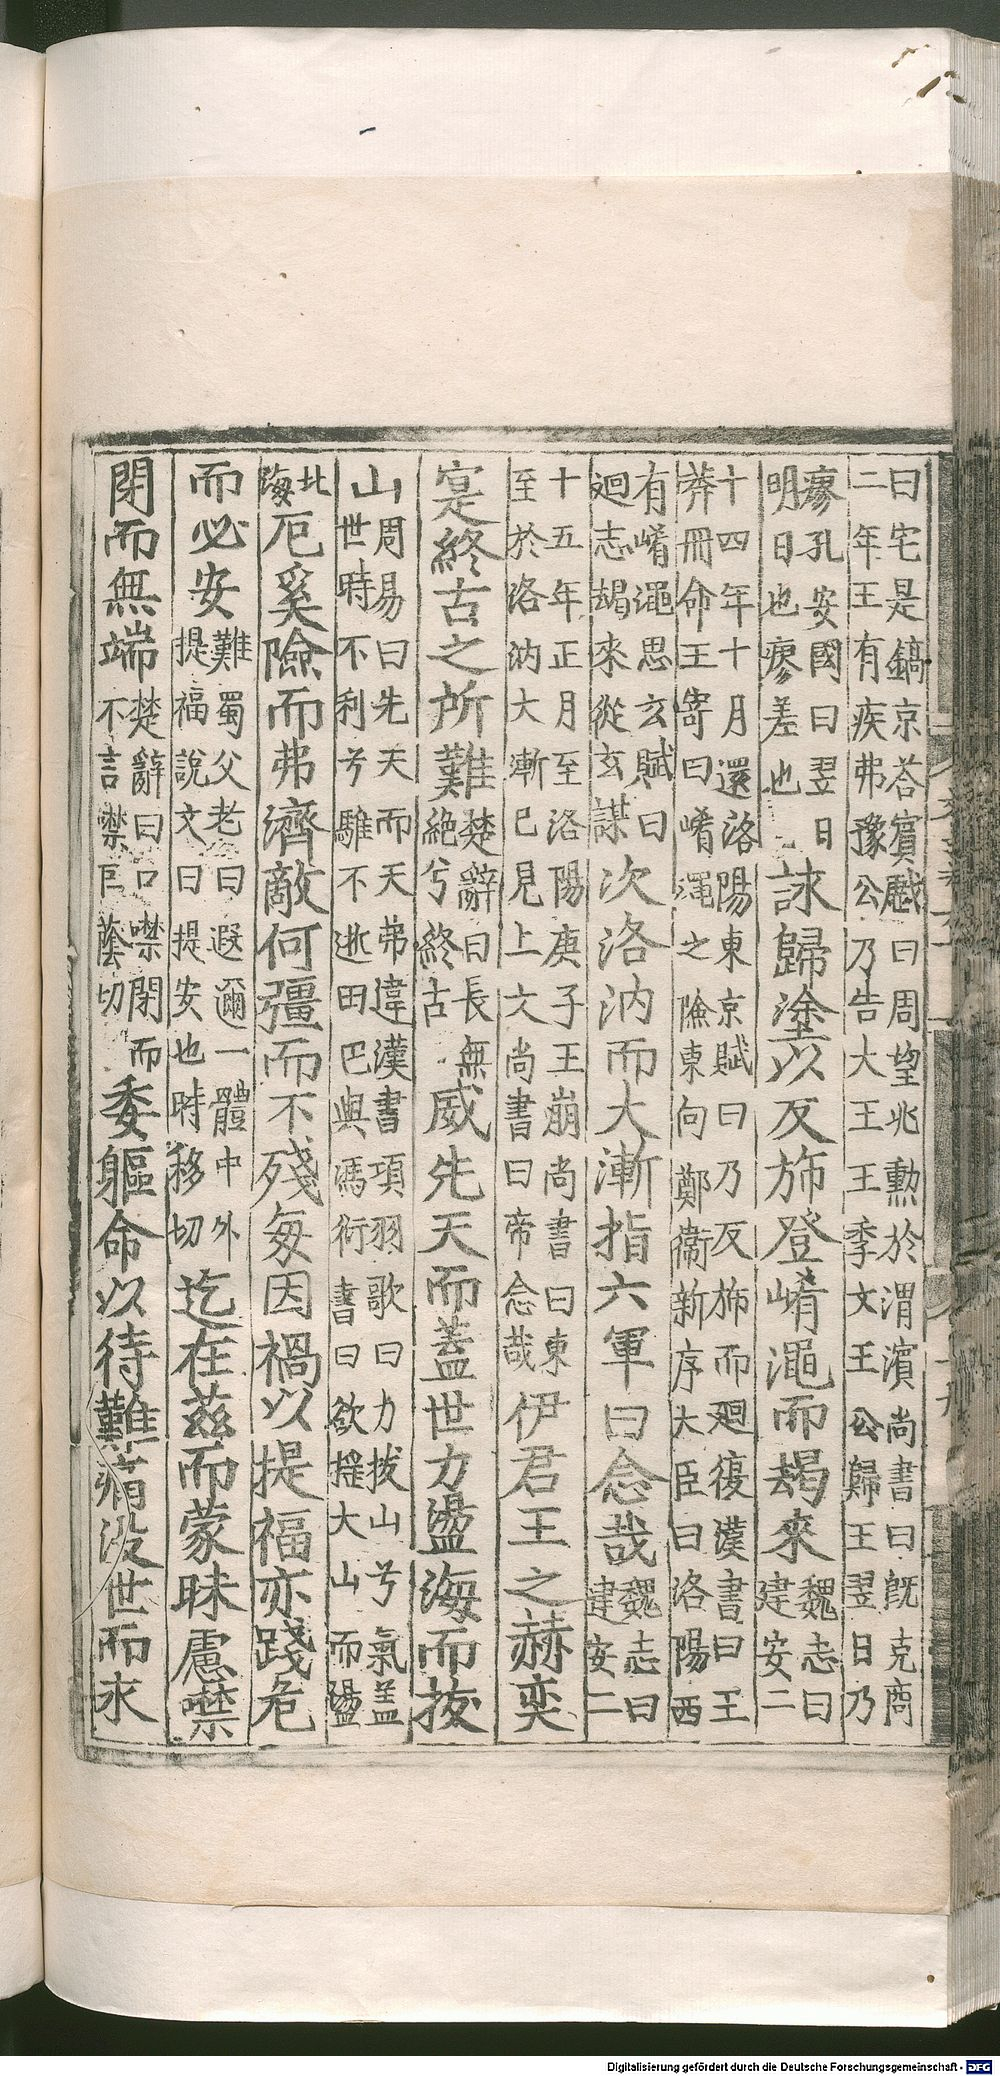 曰宅是鎬京荅賔戲曰周望兆勲於渭濱尚書曰旣克商
二年王有疾弗豫公乃告大王王季文王公歸王翌日乃
瘳孔安國曰翌日
明日也瘳差也
詠歸塗以反斾登崤澠而朅來
魏志曰
建安二
十四年十月還洛陽東京賦曰乃反斾而廻復漢書曰王
莽冊命王寄曰崤澠之險東向鄭衞新序大臣曰洛陽西
有崤澠思玄賦曰
廻志朅來從玄謀
次洛汭而大漸指六軍曰念哉
魏志曰
建安二
十五年正月至洛陽庚子王崩尚書曰東
至於洛汭大漸已見上文尚書曰帝念哉
伊君王之赫奕
寔終古之所難
楚辭曰長無
絕兮終古
威先天而蓋世力盪海而拔
山
周易曰先天而天弗違漢書項羽歌曰力拔山兮氣盖
世時不利兮騅不逝田巴與馮衍書曰欲摇大山而盪
北
海
厄奚險而弗濟敵何彊而不殘每因禍以提福亦踐危
而必安
難蜀父老曰遐邇一體中外
提福說文曰提安也時移切
迄在茲而蒙昧慮噤
閉而無端
楚辭曰口噤閉而
不言噤巨蔭切
委軀命以待難痛没世而永
Digitalisierung gefördert durch die Deutsche Forschungsgemeinschaft - DFG